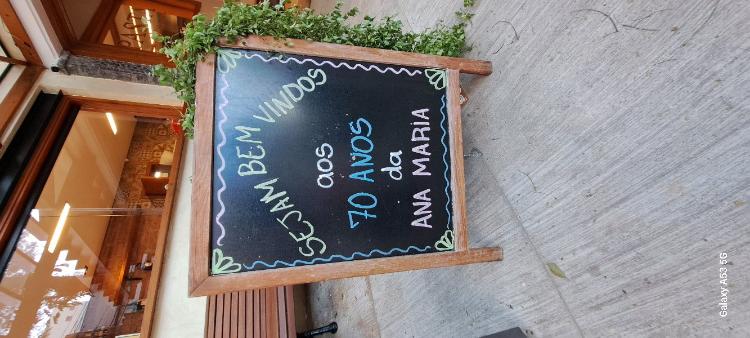 SEJAM BEM VINDOS
aos
70 ANOS
da
ANA MARIA
Galaxy A53 5G